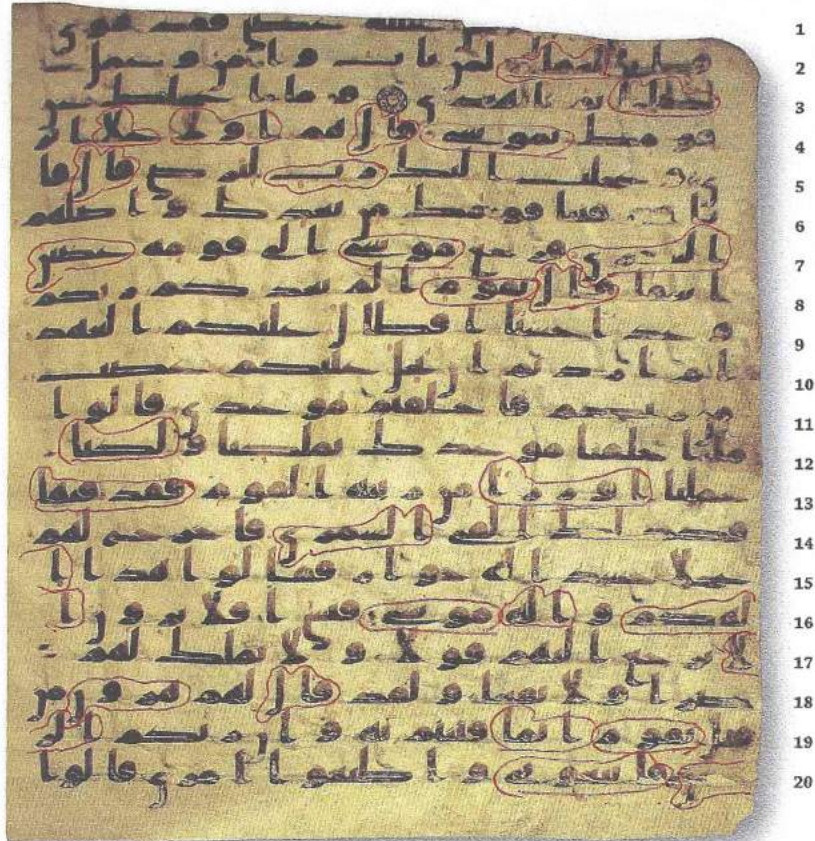 1 عليه غضبي فقد هوى
2 واني لغفار لمن تاب وامن وعمل
3 صلحا ثم اهتدى وما اعجلك عن
4 قومك يموسى قال هم اولا علا اثر
5 ي وعجلت اليك رب لترضى قال فا
6 نا قد فتنا قومك من بعدك واضلهم
7 السمري فرجع موسى الى قومه غضبن
8 اسفا قال يقوم الم يعدكم ربكم
9 وعدا حسنا افطال عليكم العهد
10 ام اردتم ان يحل عليكم غضب
11 من ربكم فاخلفتم موعدي قالوا
12 ما اخلفنا موعدك بملكنا ولكنا
13 حملنا اوزرا من زينة القوم فقذفنها
14 فكذلك القى السمري فاخرج لهم
15 عجلا جسدا له خوار فقالوا هذا ا
16 لهكم واله موسى فنسي افلا يرون ا
17 لا يرجع اليهم قولا ولا يملك لهم
18 ضرا ولا نفعا ولقد قال لهم هرون من
19 قبل يقوم انما فتنتم به وان ربكم الر
20 حمن فاتبعوني واطيعوا امري قالوا